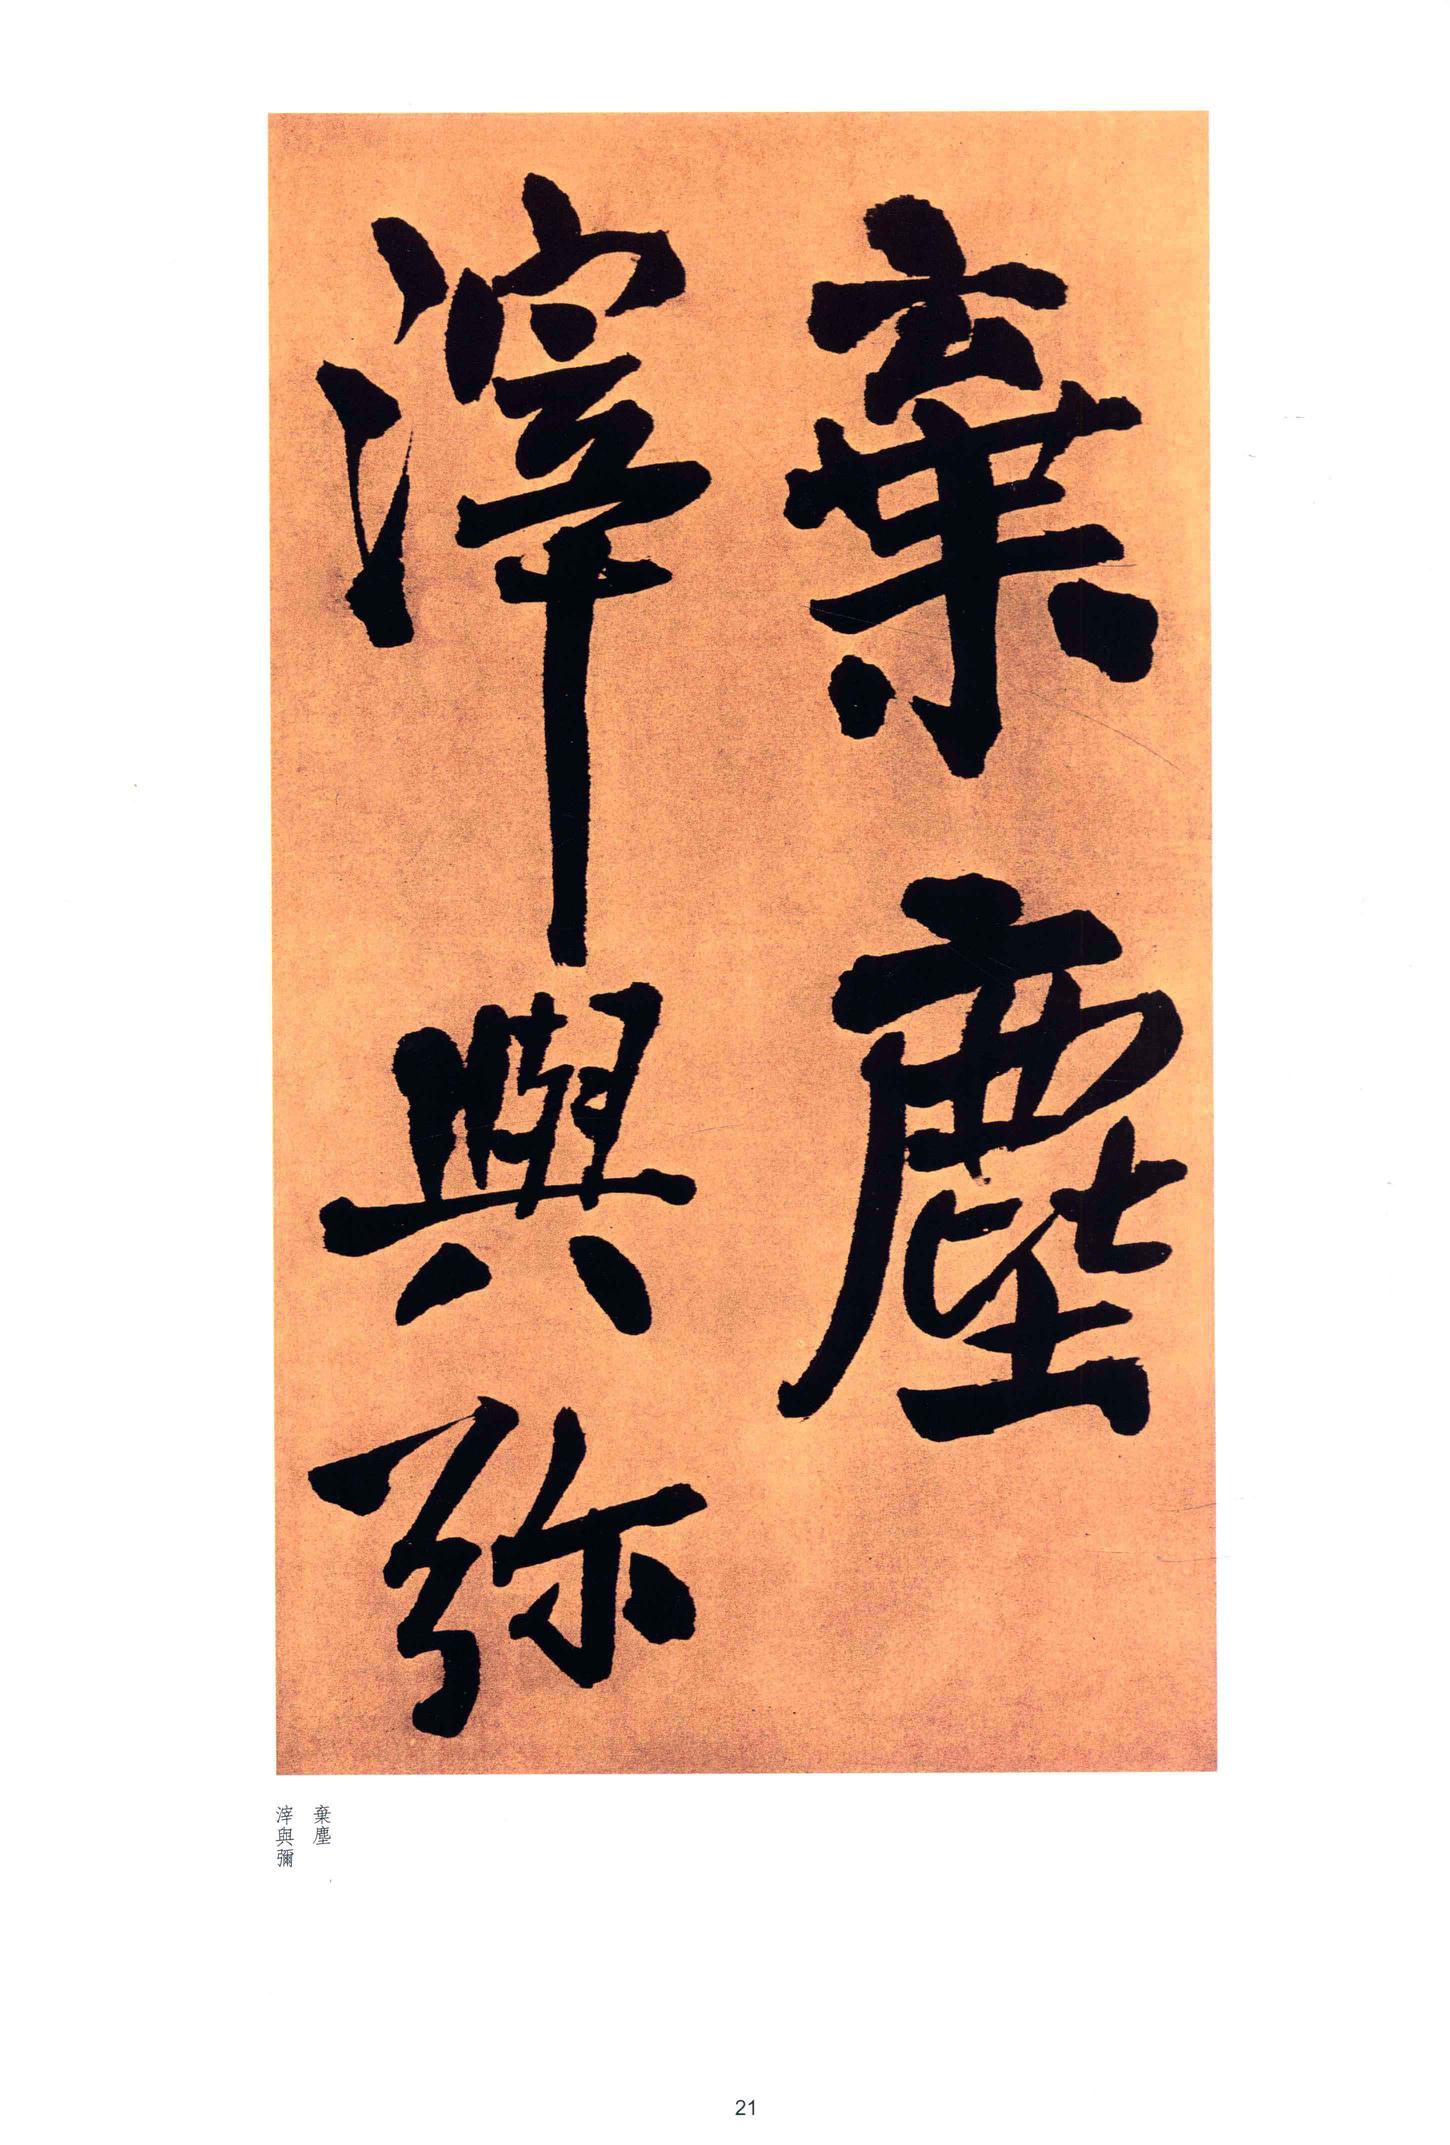 棄塵
滓與弥
棄塵
滓與彌
21